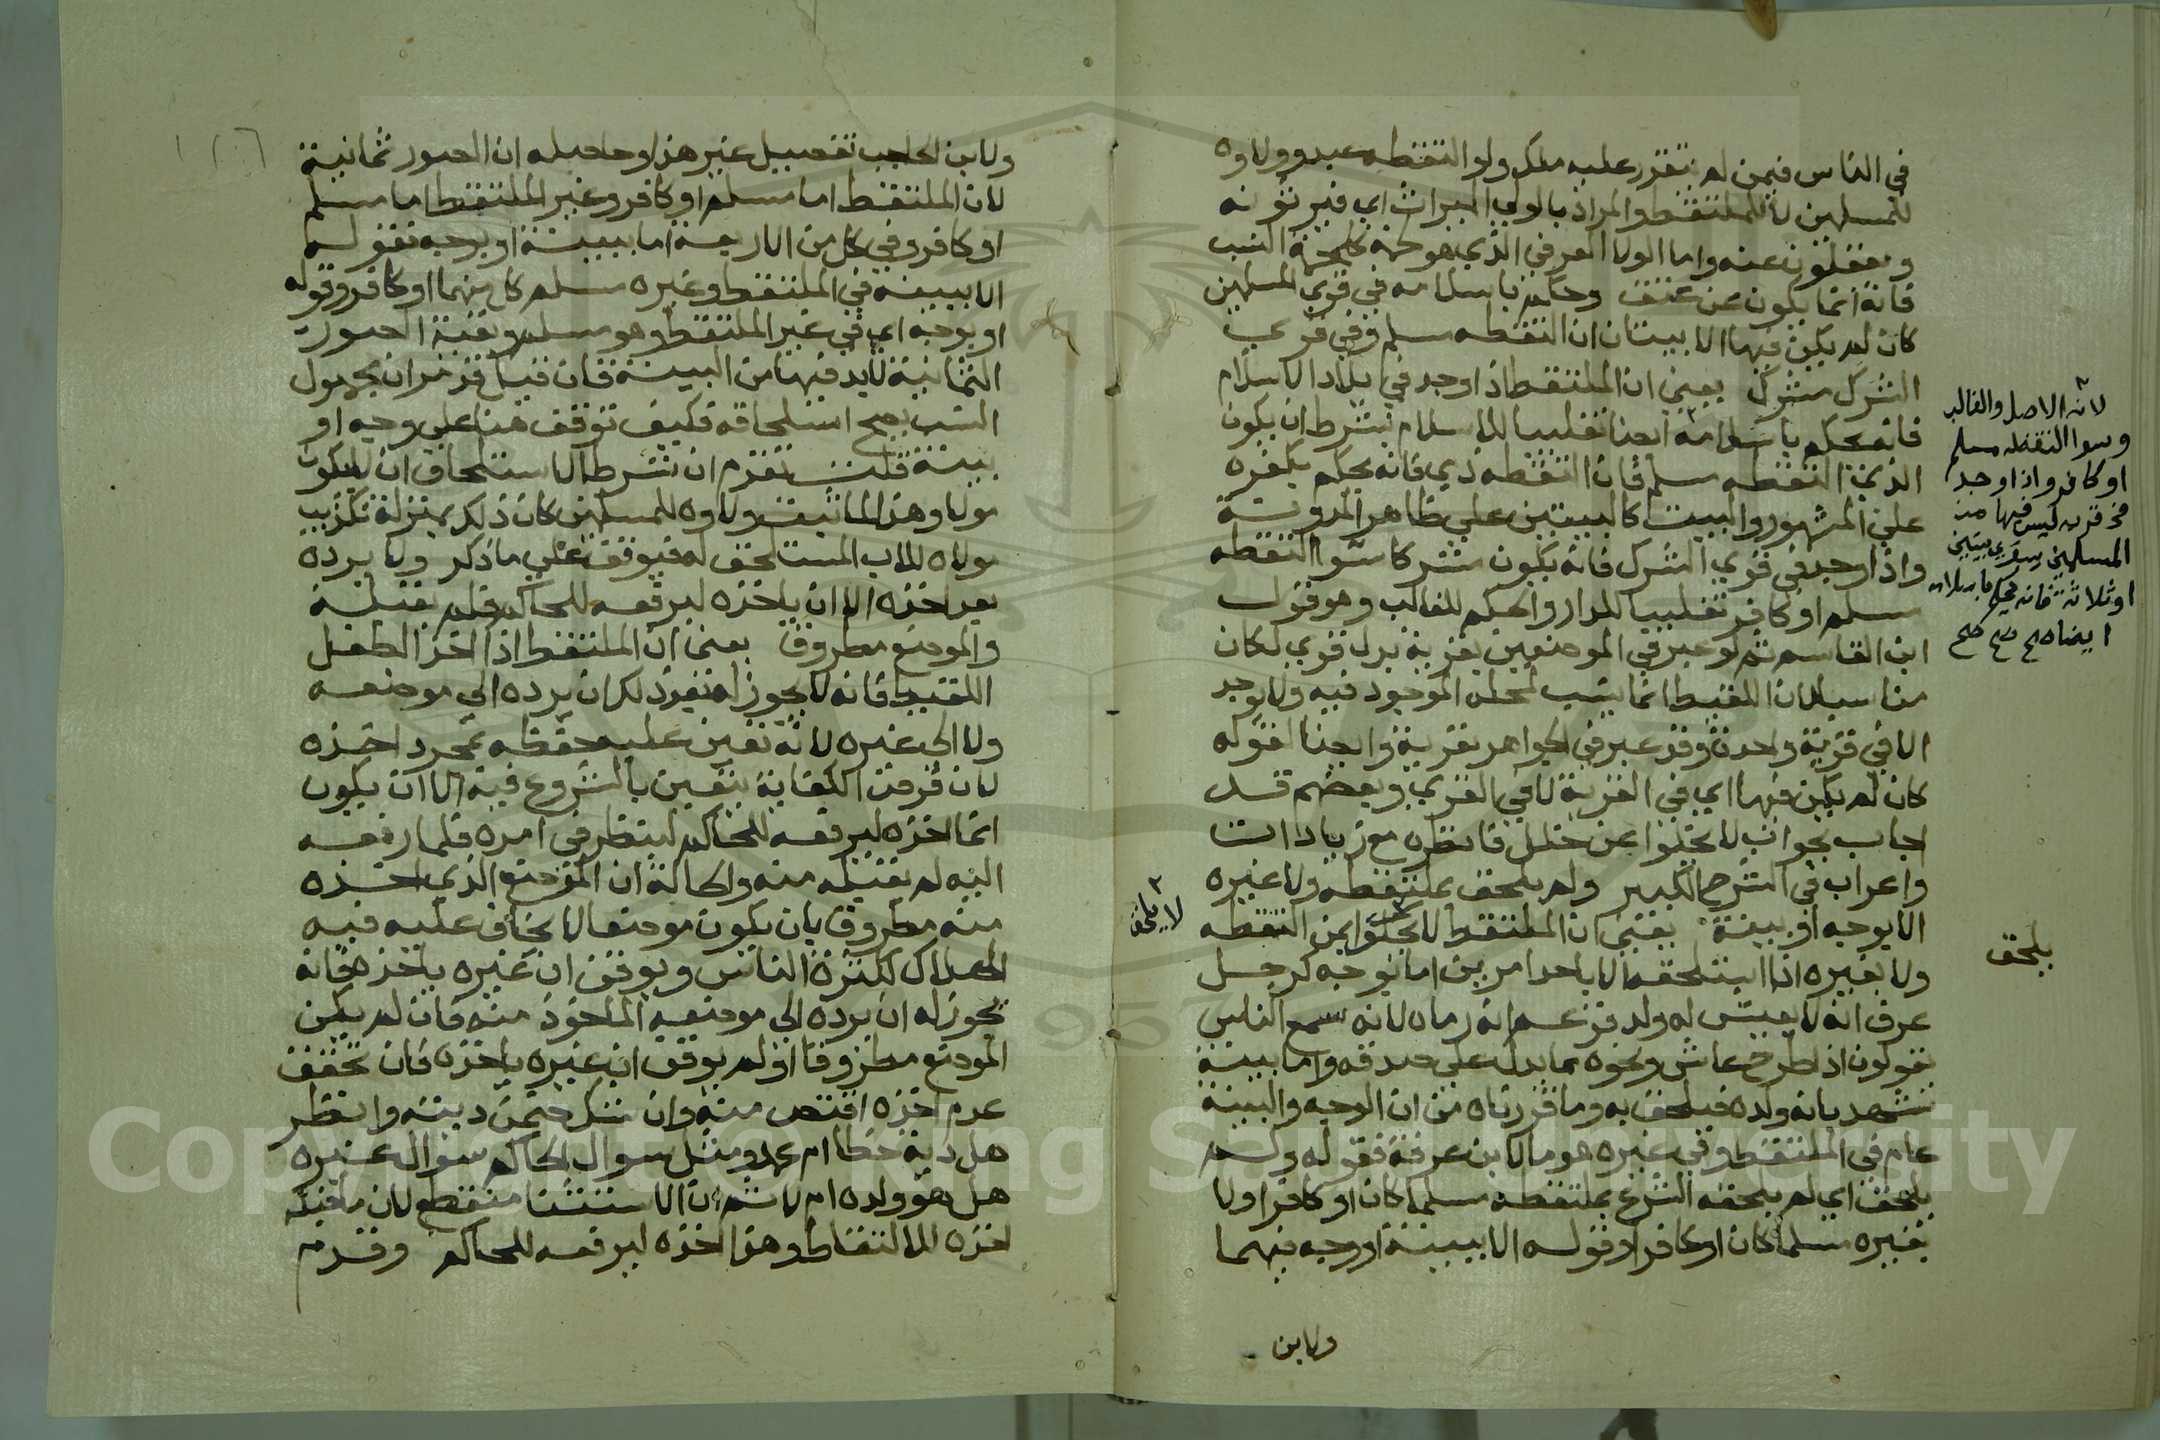 في الناس فيمن لم يتقرر عليه ملك ولو التقطه عبد وولاوه
للمسلمين لا للملتقط والمراد بالولي الميراث اي فيرثونه
ويعقلون عنه واما الولا العرفي الذي هو لحمة كلحمة النسب
فانه انما يكون عن عتق وحكم باسلامه في قري المسلمين
كان لم يكن فيها الا بيتان ان التقطه مسلم وفي قري
الشرك مشرك يعني ان الملتقط اذا وجد في بلاد الاسلام
فانه يحكم باسلامه ايضا تغليبا للاسلام بشرط ان يكون
الذي التقطه مسلم فان التقطه ذمي فانه يحكم بكفره
علي المشهور والبيت كالبيتين علي ظاهر المدونة
واذا وجد في قري الشرك فانه يكون مشركا سوا التقطه
مسلم او كافر تغليبا للدار والحكم للغالب وهو قول
ابن القاسم ثم لو عبر في الموضعين بقرية بدل قري لكان
مناسبا لان اللقيط انما ينسب لمحله الموجود فيه ولا يوجد
الا في قرية واحدة وقد عبر في الجواهر بقرية وايضا لقوله
كان لم يكن فيها اي في القرية لا في القري وبعضهم قد
اجاب بجواب لا يخلوا عن خلل فانظره مع زيادات
واعراب في الشرح الكبير ولم يلحق بملتقطه ولا غيره
الا بوجه او ببينة يعني ان الملتقط لا يخلوا بمن التقطه
ولا بغيره اذا استلحقه الا باحد امرين اما بوجه كرجل
عرف انه لا يعيش له ولد فزعم انه رماه لانه سمع الناس
يقولون اذا طرح عاش ونحوه مما يدل علي صدقه واما ببينة
تشهد بانه ولده فيلحق به وما قررناه من ان الوجه والبينة
عام في الملتقط وفي غيره هو ما لابن عرفة فقوله ولم
يلحق اي لم يلحقه الشرع بملتقطه مسلما كان او كافرا ولا
بغيره مسلما كان او كافرا وقوله الا ببينة او وجه فيهما
ولابن
لانه الاصل والغالب
وسوا التقطه مسلم
او كافر واذا وجد
في قرية ليس فيها من
المسلمين سوي بيتين
او ثلاثة فانه يحكم باسلامه
ايضا صح صح صح
يلحق
لا يلحق
ولابن الحاجب تفصيل غير هذا وحاصله ان الصور ثمانية
لان الملتقط اما مسلم او كافر وغير الملتقط اما مسلم
او كافر وفي كل من الاربعة اما ببينة او بوجه فقوله
الا ببينة في الملتقط وغيره مسلم كل منهما او كافر وقوله
او بوجه اي في غير الملتقط وهو مسلم وبقية الصور
الثمانية لا بد فيها من البينة فان قيل قد مر ان مجهول
النسب يصح استلحاقه فكيف توقف هنا علي وجه او
بينة قلت تقدم ان شرط الاستلحاق ان لا يكون
مولا وهذا لما ثبت ولاوه للمسلمين كان ذلك بمنزلة تكذيب
مولاه للاب المستلحق له فيوقف علي ما ذكر ولا يرده
بعد اخذه الا ان ياخذه ليرفعه للحاكم فلم يقبله
والموضع مطروق يعني ان الملتقط اذا اخذ الطفل
اللقيط فانه لا يجوز له بعد ذلك ان يرده الي موضعه
ولا الي غيره لانه تعين عليه حفظه بمجرد اخذه
لان فرض الكفاية يتعين بالشروع فيه الا ان يكون
انما اخذه ليرفعه للحاكم لينظر في امره فلما رفعه
اليه لم يقبله منه والحالة ان الموضع الذي اخذه
منه مطروق بان يكون موضعا لا يخاف عليه فيه
الهلاك لكثرة الناس ويوقن ان غيره ياخذه فانه
يجوز له ان يرده الي موضعه الماخوذ منه فان لم يكن
الموضع مطروقا او لم يوقن ان غيره ياخذه فان تحقق
عدم اخذه اقتص منه وان شك ضمن ديته وانظر
هل دية خطا ام عمد ومثل سوال الحاكم سوال غيره
هل هو ولده ام لا ثم ان الاستثنا منقطع لان ما قبله
اخذه للالتقاط وهذا اخذه ليرفعه للحاكم وقدم
Copyright © King Saud University